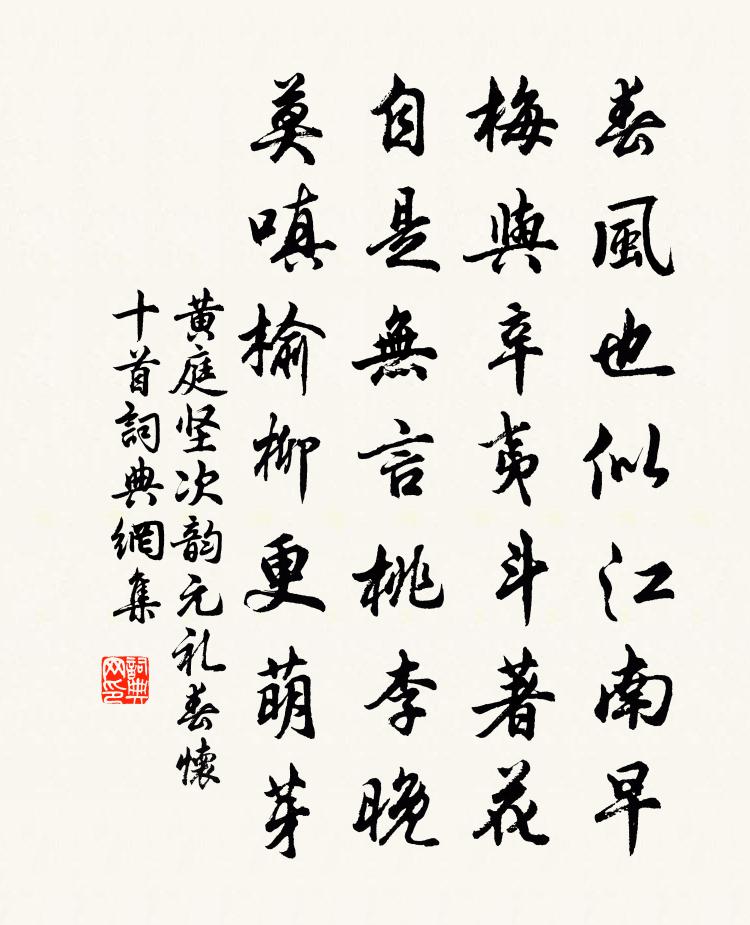 春風也似江南早
梅與辛夷斗著花
自是無言桃李晚
莫嗔榆柳更萌芽
黄庭坚次韵元礼春懷
十首詞典網集
詞典網印